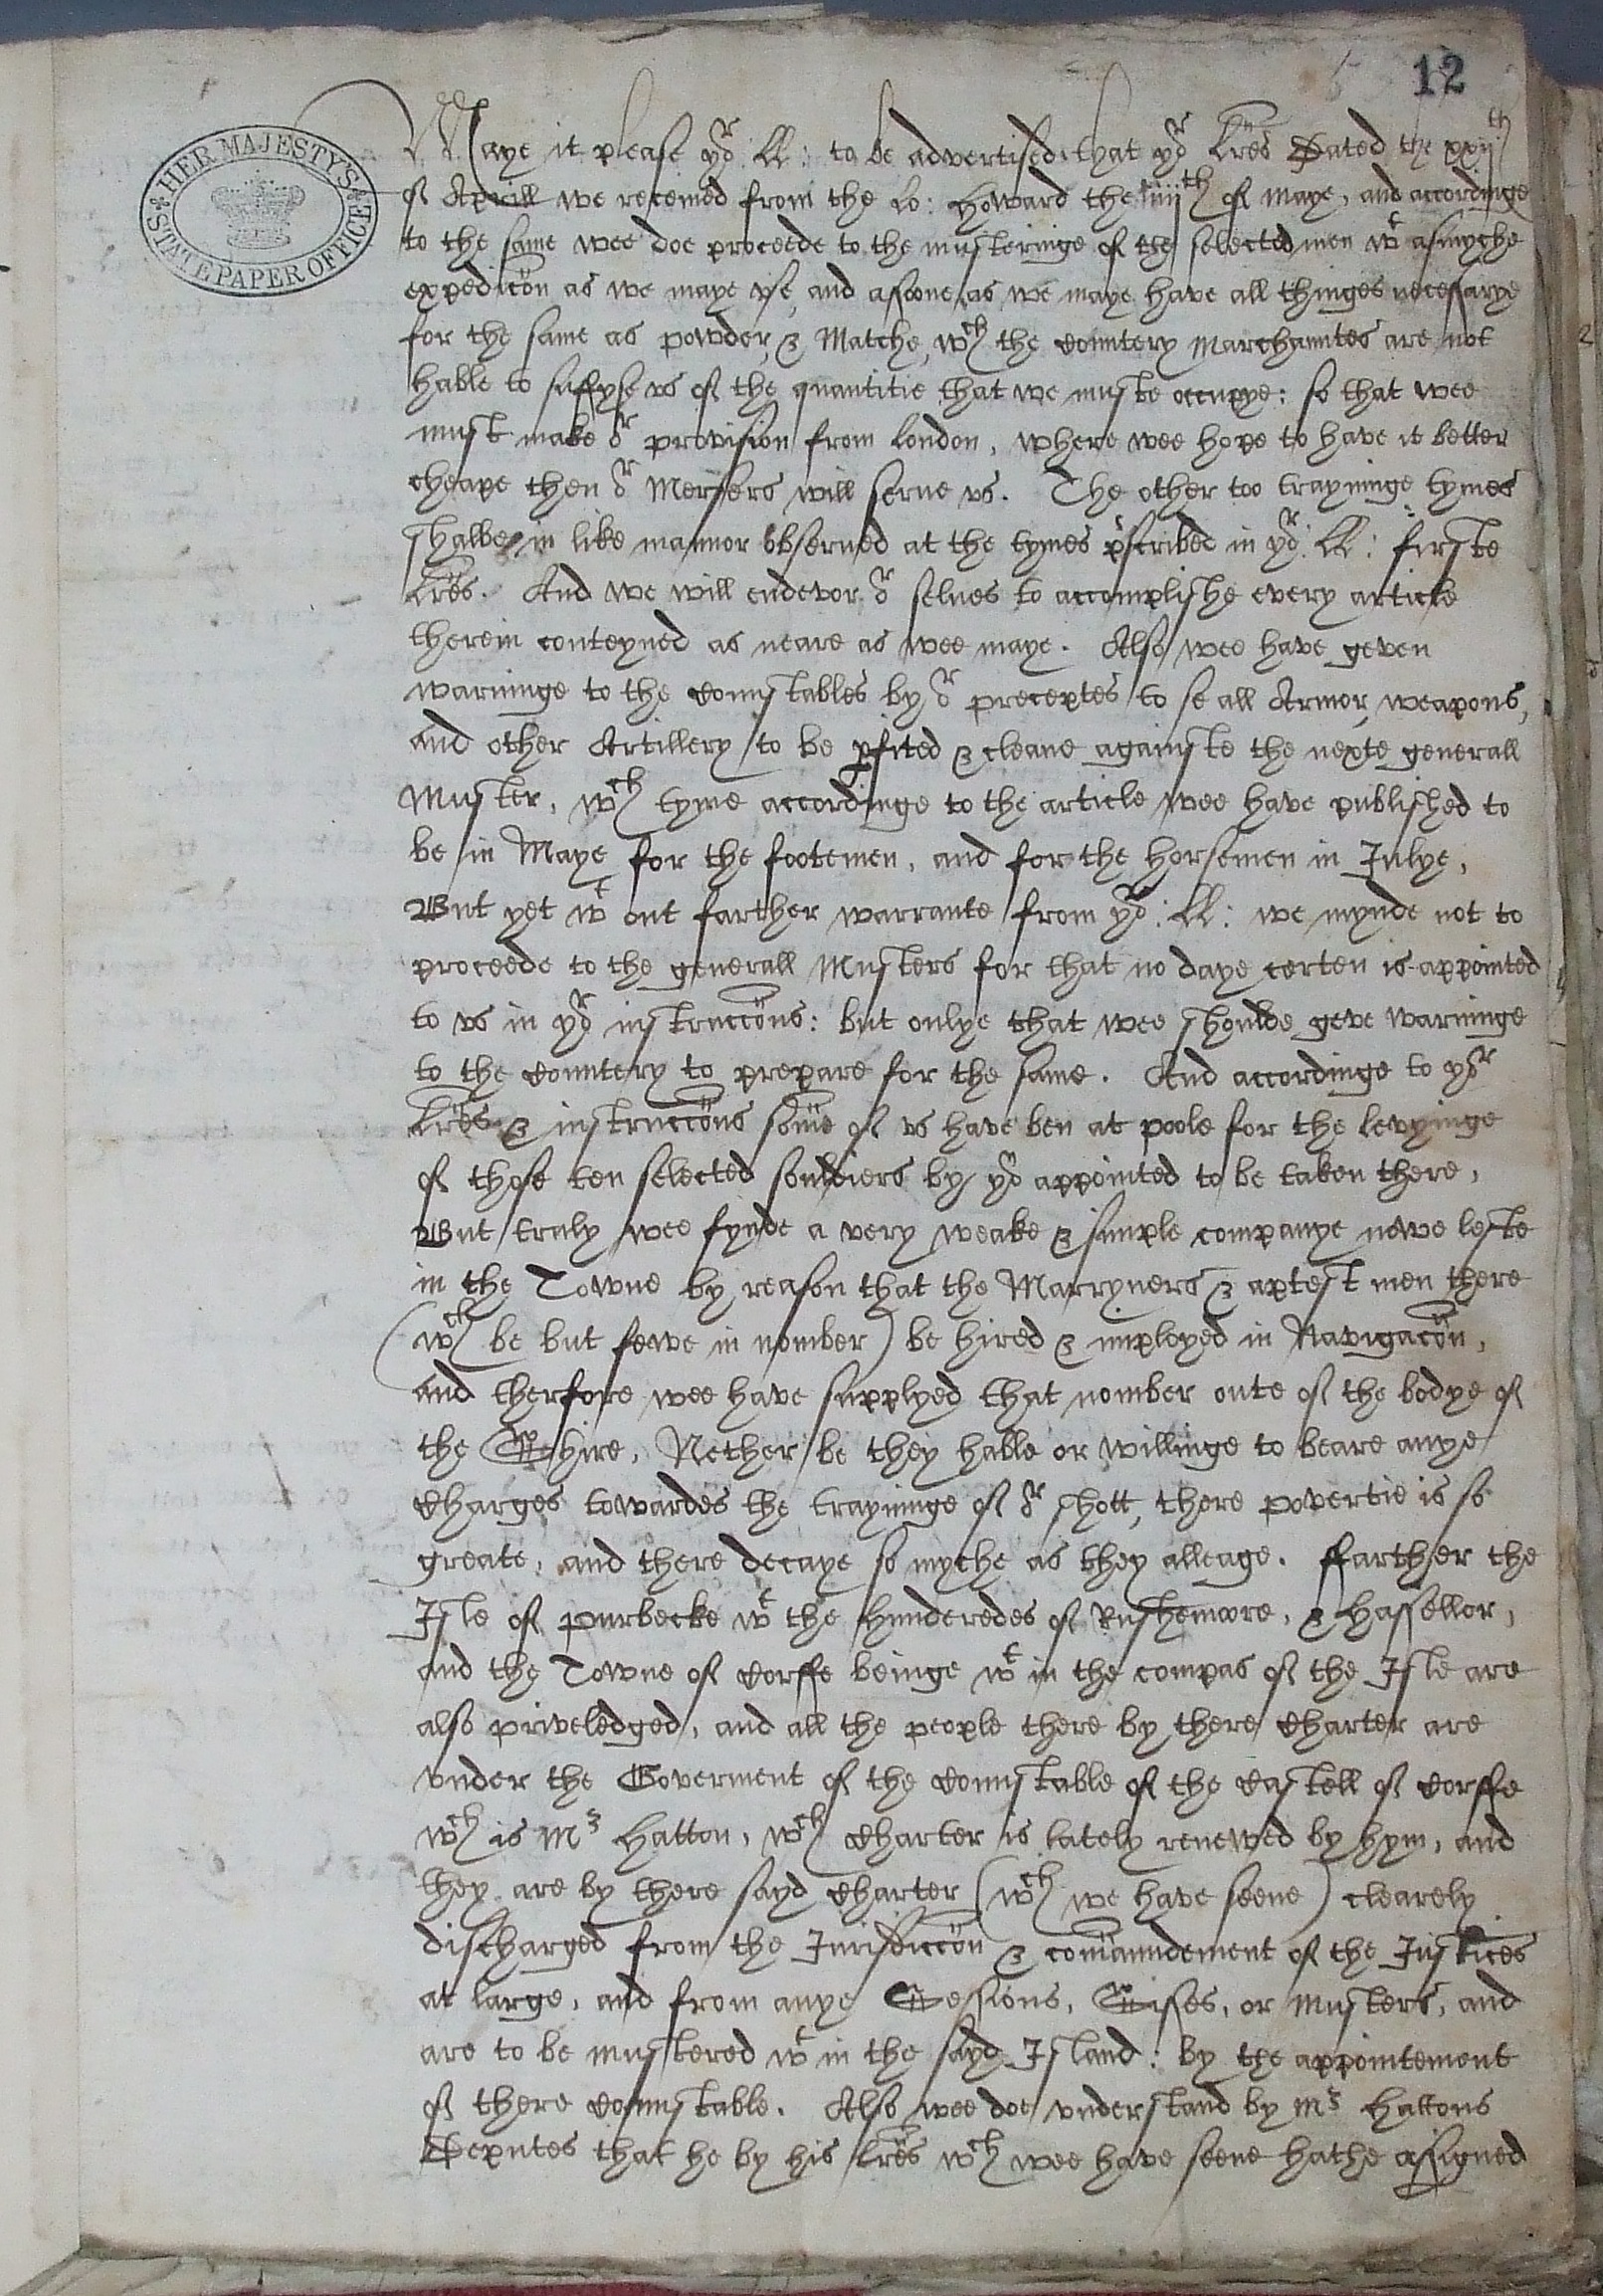 12
HER MAJESTY'S STATE PAPER OFFICE
Maye it please yor LL: to be advertised that yor Lres Dated the xxijth
of Aprill we receiued from the Lo: Howard the iiijth of maye, and accordinge
to the same wee doe proceede to the musteringe of the selected men wt asmyche
expedicon as we maye vse, and assone as we maye have all thinges necessarye
for the same as powder & Matche, wch the Countery Marchauntes are not
hable to suffyse vs of the quantitie that we muste occupye: so that wee
must make or provision from London, where wee hope to have it better
cheape then or Mersers will serue vs. The other too trayninge tymes
shalbe in like mannor obserued at the tymes pscribed in yor LL: firste
Lres. And we will endevor or selues to accomplishe every article
therein conteyned as neare as wee maye. Also wee have geven
warninge to the Counstables by or preceptes to se all Armor, weapons,
and other Artillery to be pfited & cleane againste the nexte generall
Muster, wch tyme accordinge to the article wee have published to
be in Maye for the footemen, and for the horsemen in Julye,
But yet wt out farther warrante from yor: LL: we mynde not to
proceede to the generall Musters for that no daye certen is appointed
to vs in yor instruccons: but onlye that wee shoulde geve warninge
to the Countery to prepare for the same. And accordinge to yor
Lres & instruccons some of vs have ben at poole for the levyinge
of those ten selected souldiers by yor appointed to be taken there,
But truly wee fynde a very weake & simple companye nowe lefte
in the Towne by reason that the Marryners & aptest men there
(wch be but fewe in nomber) be hired & imployed in Navigacon,
and therfore wee have supplyed that nomber oute of the bodye of
the Shire, Nether be they hable or willinge to beare anye
Charges towardes the trayninge of or shott, there povertie is so
greate, and there decaye so myche as they alleage. Farther the
Isle of purbecke wt the Hunderedes of Rushemoore, & Hassellor,
and the Towne of Corffe beinge wt in the compas of the Isle are
also priveledged, and all the people there by there Charter are
vnder the Goverment of the Counstable of the Castell of Corffe
wch is Mr Hatton, wch Charter is lately renewed by hym, and
they are by there sayd Charter (wch we have seene) clearely
discharged from the Jurisdiccon & comaundement of the Justices
at large, and from anye Sessions, Sises, or Musters, and
are to be mustered wt in the sayd Island: by the appointement
of there Counstable. Also wee doe vnderstand by Mr Hattons
Deputes that he by his Lres wch wee have seene hathe assigned